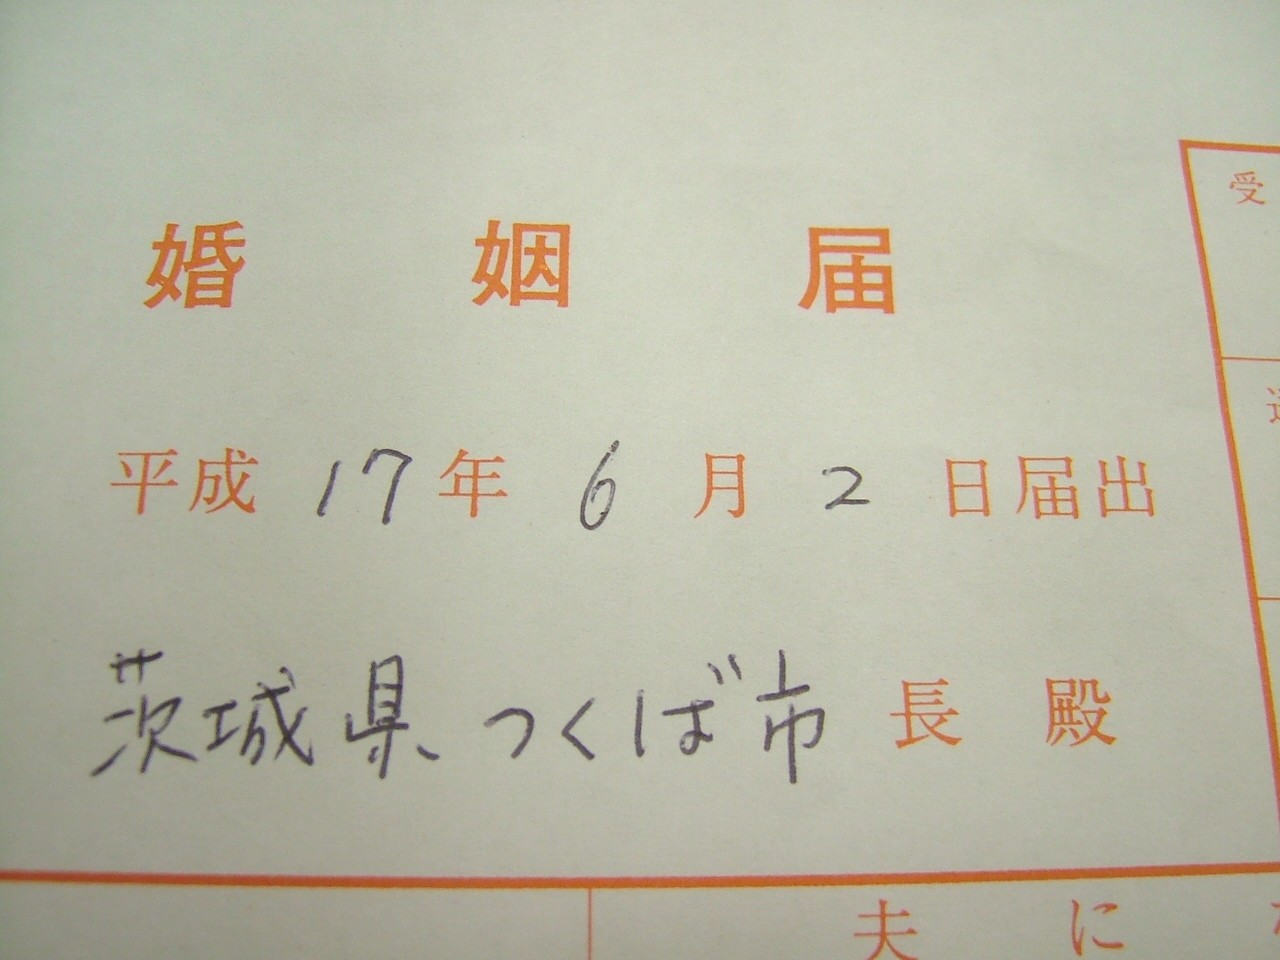 婚姻届
平成17年6月2日届出
茨城県つくば市長殿
受
夫に